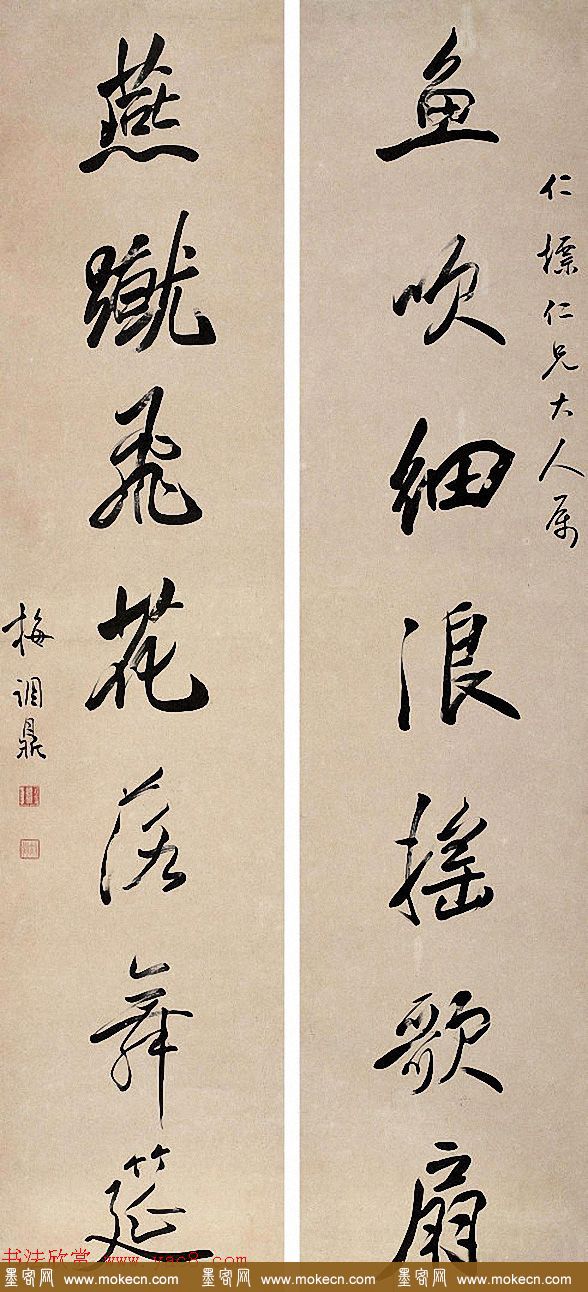 仁标仁兄大人属
鱼吹细浪摇歌扇
燕蹴飞花落舞筵
梅调鼎
书法欣赏 www.yac8.com
墨客网 www.mokecn.com 墨客网 www.mokecn.com 墨客网 www.mokecn.com